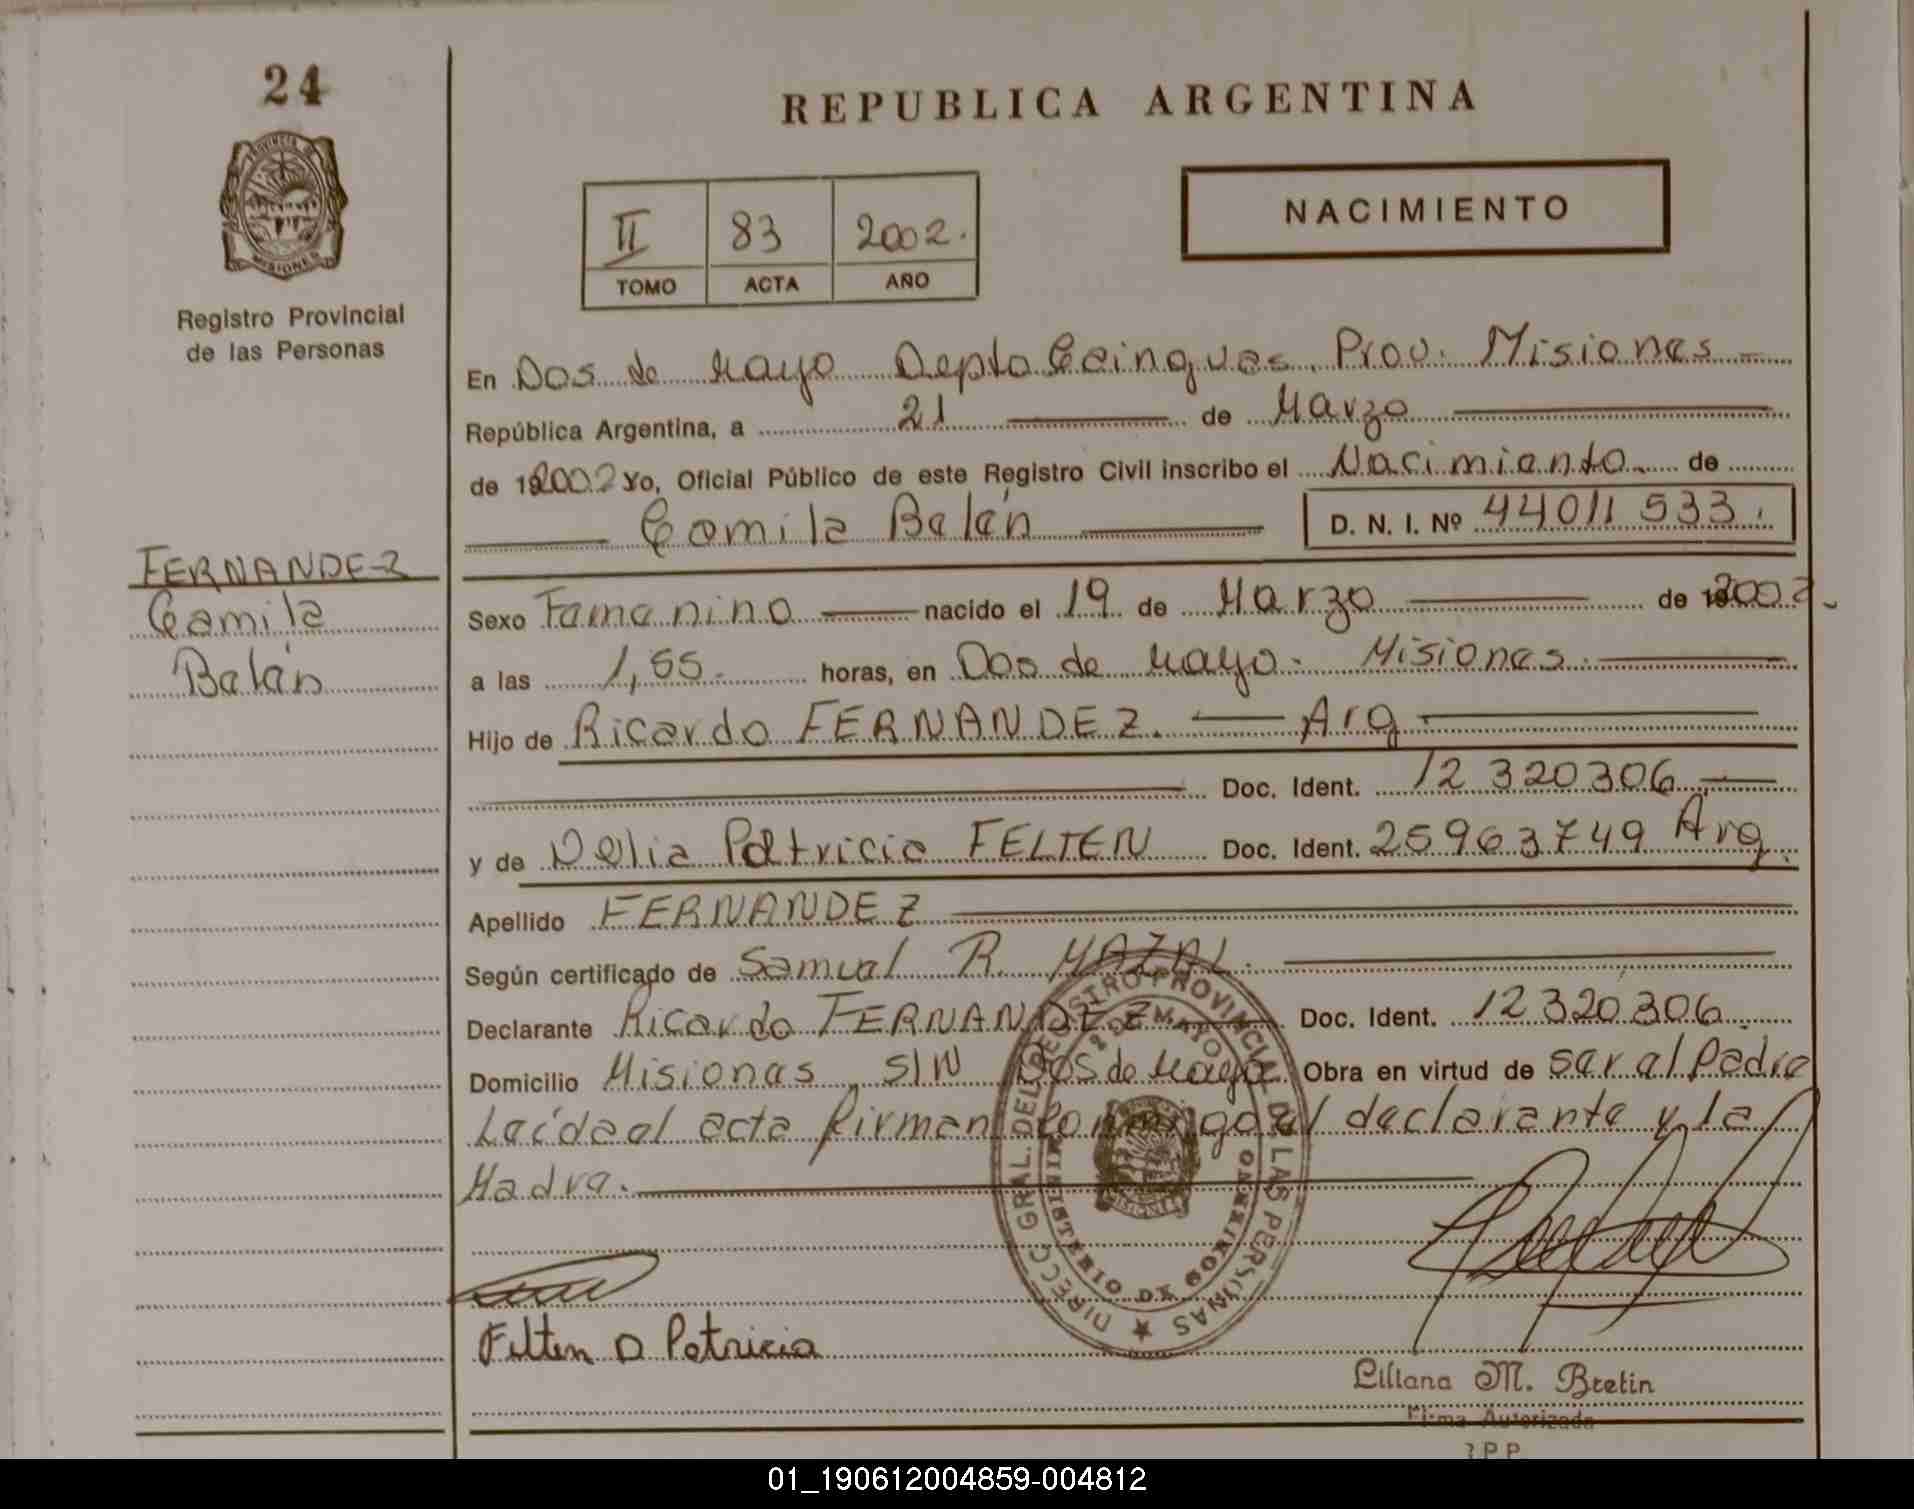 24
REPUBLICA ARGENTINA
NACIMIENTO
II 83 2002.
TOMO ACTA AÑO
PROVINCIA DE
MISIONES
Registro Provincial
de las Personas
En Dos de Mayo Depto Cainguas. Prov. Misiones
República Argentina, a 21 de Marzo
de 192002 Yo, Oficial Público de este Registro Civil inscribo el Nacimiento de
Camila Belén D. N. I. Nº 44011533.
FERNANDEZ
Camila
Belén
Sexo Femenino nacido el 19 de Marzo de 192002.
a las 1,55. horas, en Dos de Mayo. Misiones.
Hijo de Ricardo FERNANDEZ. Arg.
Doc. Ident. 12320306
y de Delia Patricia FELTEN Doc. Ident. 25963749 Arg.
Apellido FERNANDEZ
Según certificado de Samuel R. MAZAL.
Declarante Ricardo FERNANDEZ Doc. Ident. 12320306.
Domicilio Misiones, S/N Dos de Mayo Obra en virtud de ser el Padre
Leída el acta firman conmigo el declarante y la
Madre.
DIRECC GRAL. DEL REGISTRO PROVINCIAL DE LAS PERSONAS
2 DE MAYO
MINISTERIO DE GOBIERNO
Felten D Patricia
Liliana M. Bretin
Firma Autorizada
R.P.P.
01_190612004859-004812